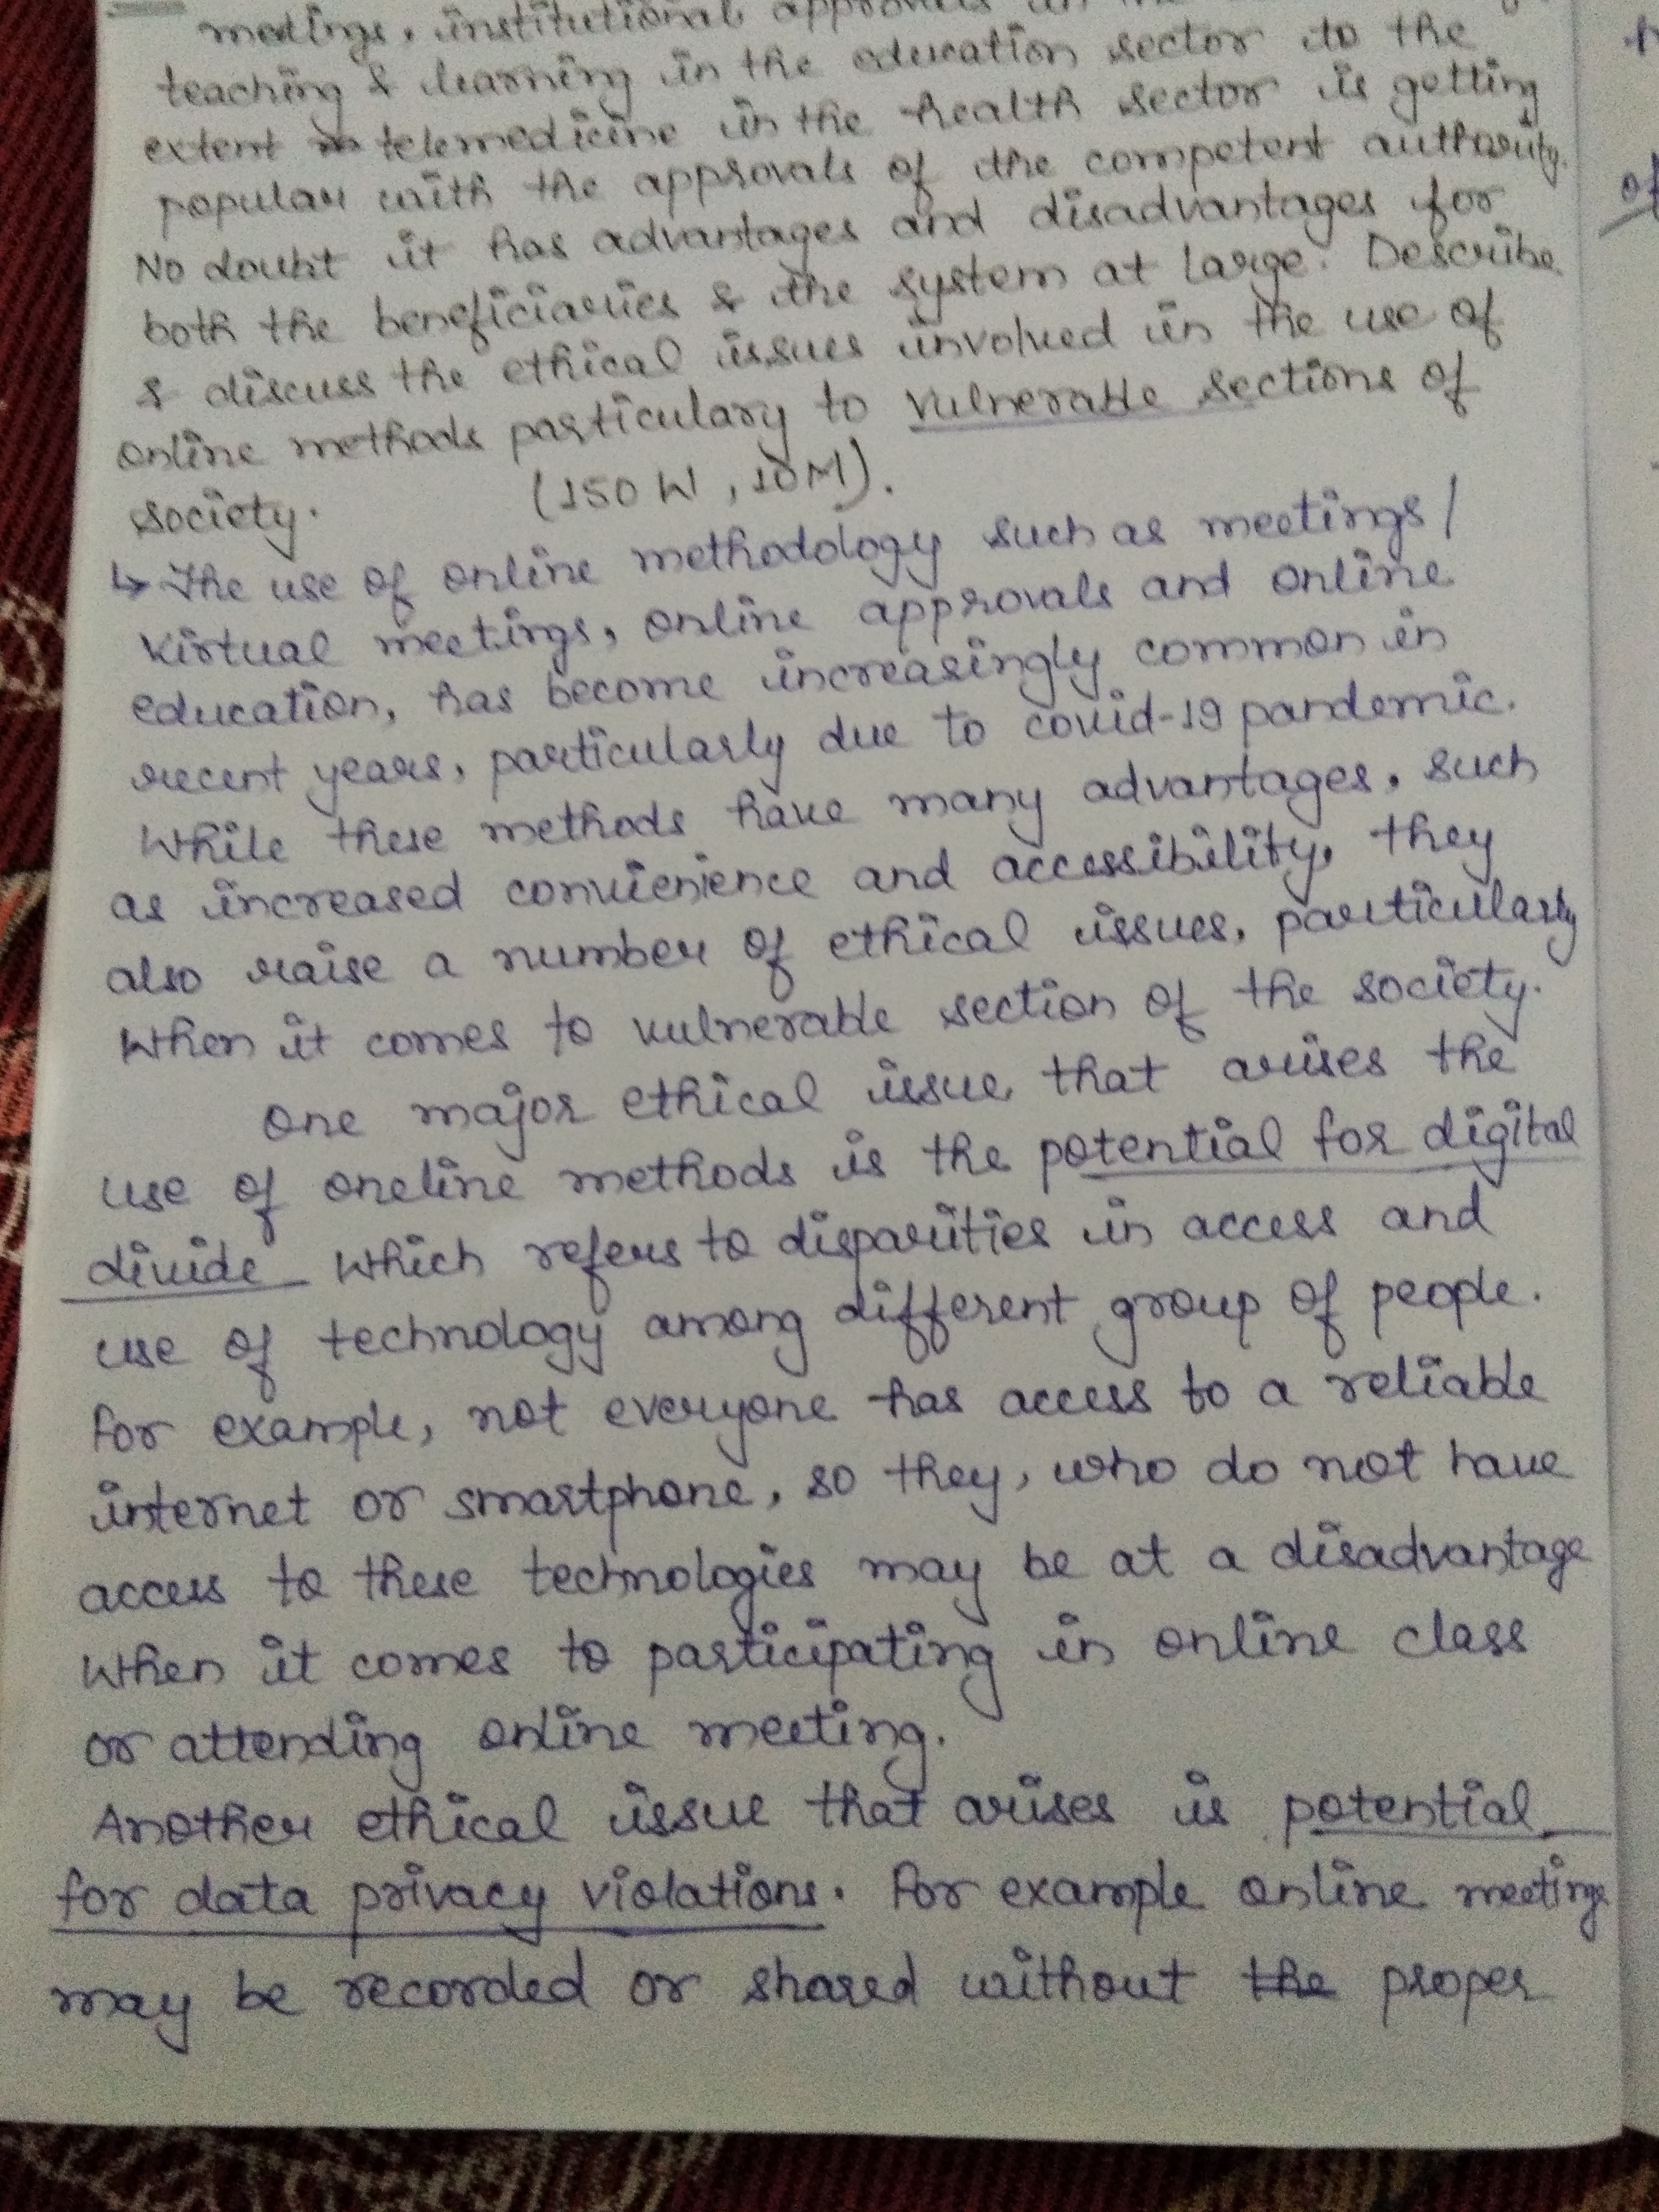 meetings, institutional approvals in the
teaching & learning in the education sector to the
extent telemedicine in the health sector is getting
popular with the approvals of the competent authority.
No doubt it has advantages and disadvantages for
both the beneficiaries & the system at large. Describe
& discuss the ethical issues involved in the use of
online methods particulary to vulnerable sections of
society. (150 W, 10M).
↳ The use of online methodology such as meetings/
virtual meetings, online approvals and online
education, has become increasingly common in
recent years, particularly due to covid-19 pandemic.
While these methods have many advantages, such
as increased convienience and accessibility, they
also raise a number of ethical issues, particularly
when it comes to vulnerable section of the society.
One major ethical issue that arises the
use of oneline methods is the potential for digital
divide which refers to disparities in access and
use of technology among different group of people.
For example, not everyone has access to a reliable
internet or smartphone, so they, who do not have
access to these technologies may be at a disadvantage
when it comes to participating in online class
or attending online meeting.
Another ethical issue that arises is potential
for data privacy violations. For example online meetings
may be recorded or shared without the proper
of